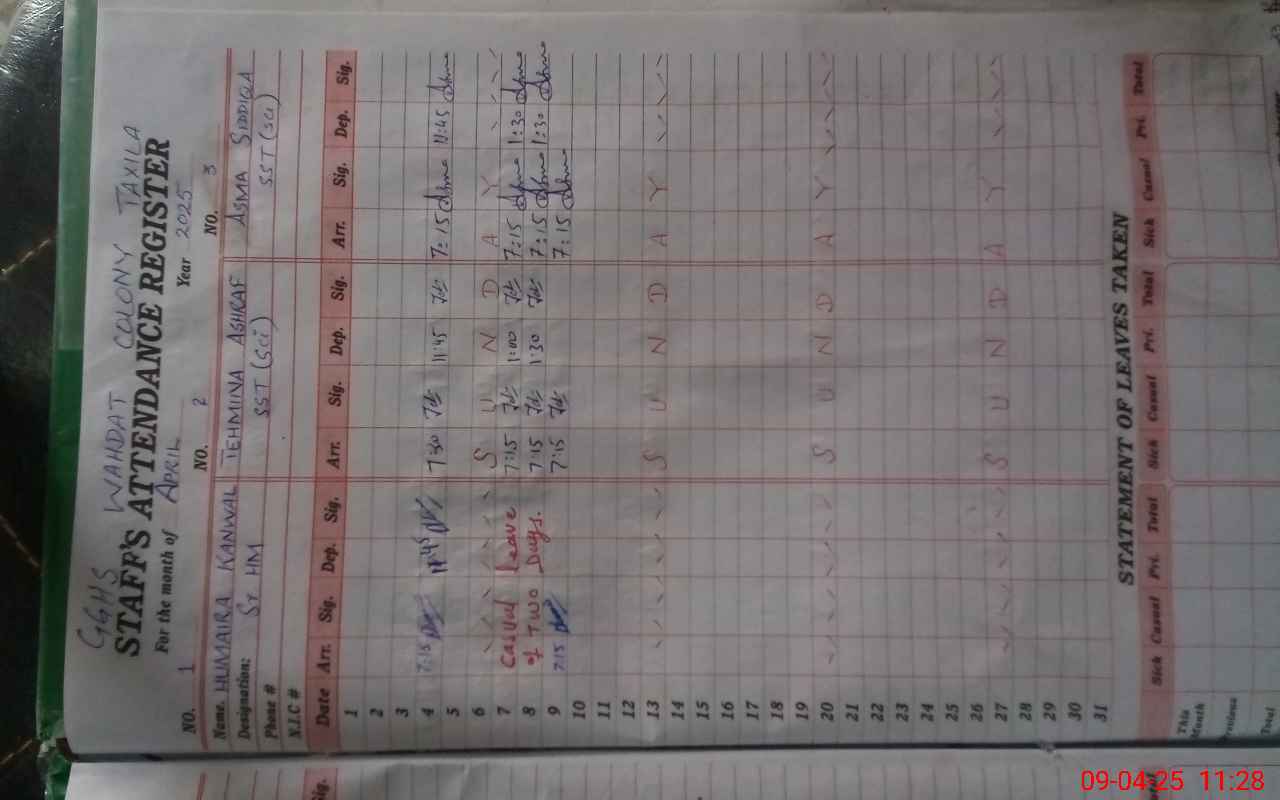 GGHS WAHDAT COLONY TAXILA
STAFF'S ATTENDANCE REGISTER
For the month of APRIL Year 2025
NO. 1 NO. 2 NO. 3
Name. HUMAIRA KANWAL TEHMINA ASHRAF ASMA SIDDIQA
Designation: Sr HM SST (Sci) SST (sci)
Phone #
N.I.C #
Date Arr. Sig. Dep. Sig. Arr. Sig. Dep. Sig. Arr. Sig. Dep. Sig.
1
2
3
4 7:15 11:45 7:30 11:45 7:15 11:45
5
6 S U N D A Y
7 Casual leave 7:15 1:00 7:15 1:30
8 of Two Days. 7:15 1:30 7:15 1:30
9 7:15 7:15 7:15
10
11
12
13 S U N D A Y
14
15
16
17
18
19
20 S U N D A Y
21
22
23
24
25
26
27 S U N D A Y
28
29
30
31
STATEMENT OF LEAVES TAKEN
Sick Casual Pri. Total Sick Casual Pri. Total Sick Casual Pri. Total
This Month
Previous
Total
Sig.
Total
09-04-25 11:28